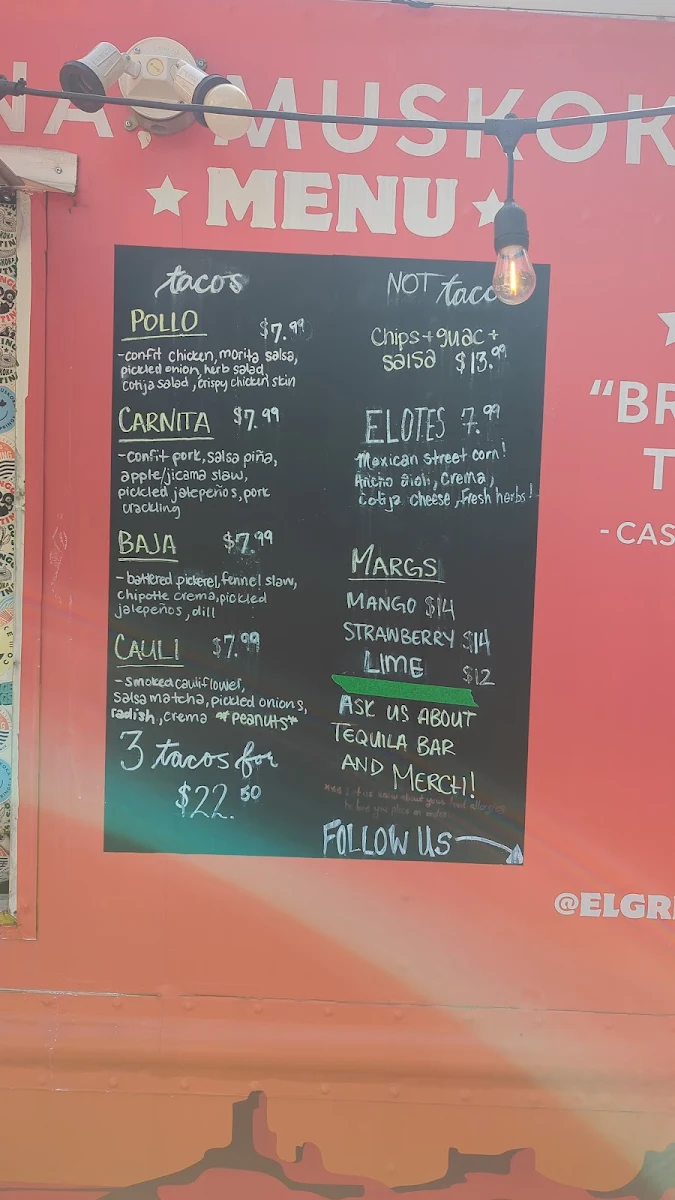 NA, MUSKOK
MENU
tacos
POLLO $7.99
-confit chicken, morita salsa,
pickled onion, herb salad
cotija salad, crispy chicken skin
CARNITA $7.99
-confit pork, salsa piña,
apple/jicama slaw,
pickled jalepeños, pork
crackling
BAJA $7.99
-battered pickerel, fennel slaw,
chipotle crema, pickled
jalepeños, dill
CAULI $7.99
-smoked cauliflower,
salsa matcha, pickled onions,
radish, crema *PEANUTS*
3 tacos for
$22.50
NOT taco
Chips + guac +
salsa $13.99
ELOTES 7.99
Mexican street corn!
Ancho aioli, crema,
cotija cheese, fresh herbs!
MARGS
MANGO $14
STRAWBERRY $14
LIME $12
ASK US ABOUT
TEQUILA BAR
AND MERCH!
let us know about your food allergies
you place an order
FOLLOW US
"BR
T
- CAS
@ELGR